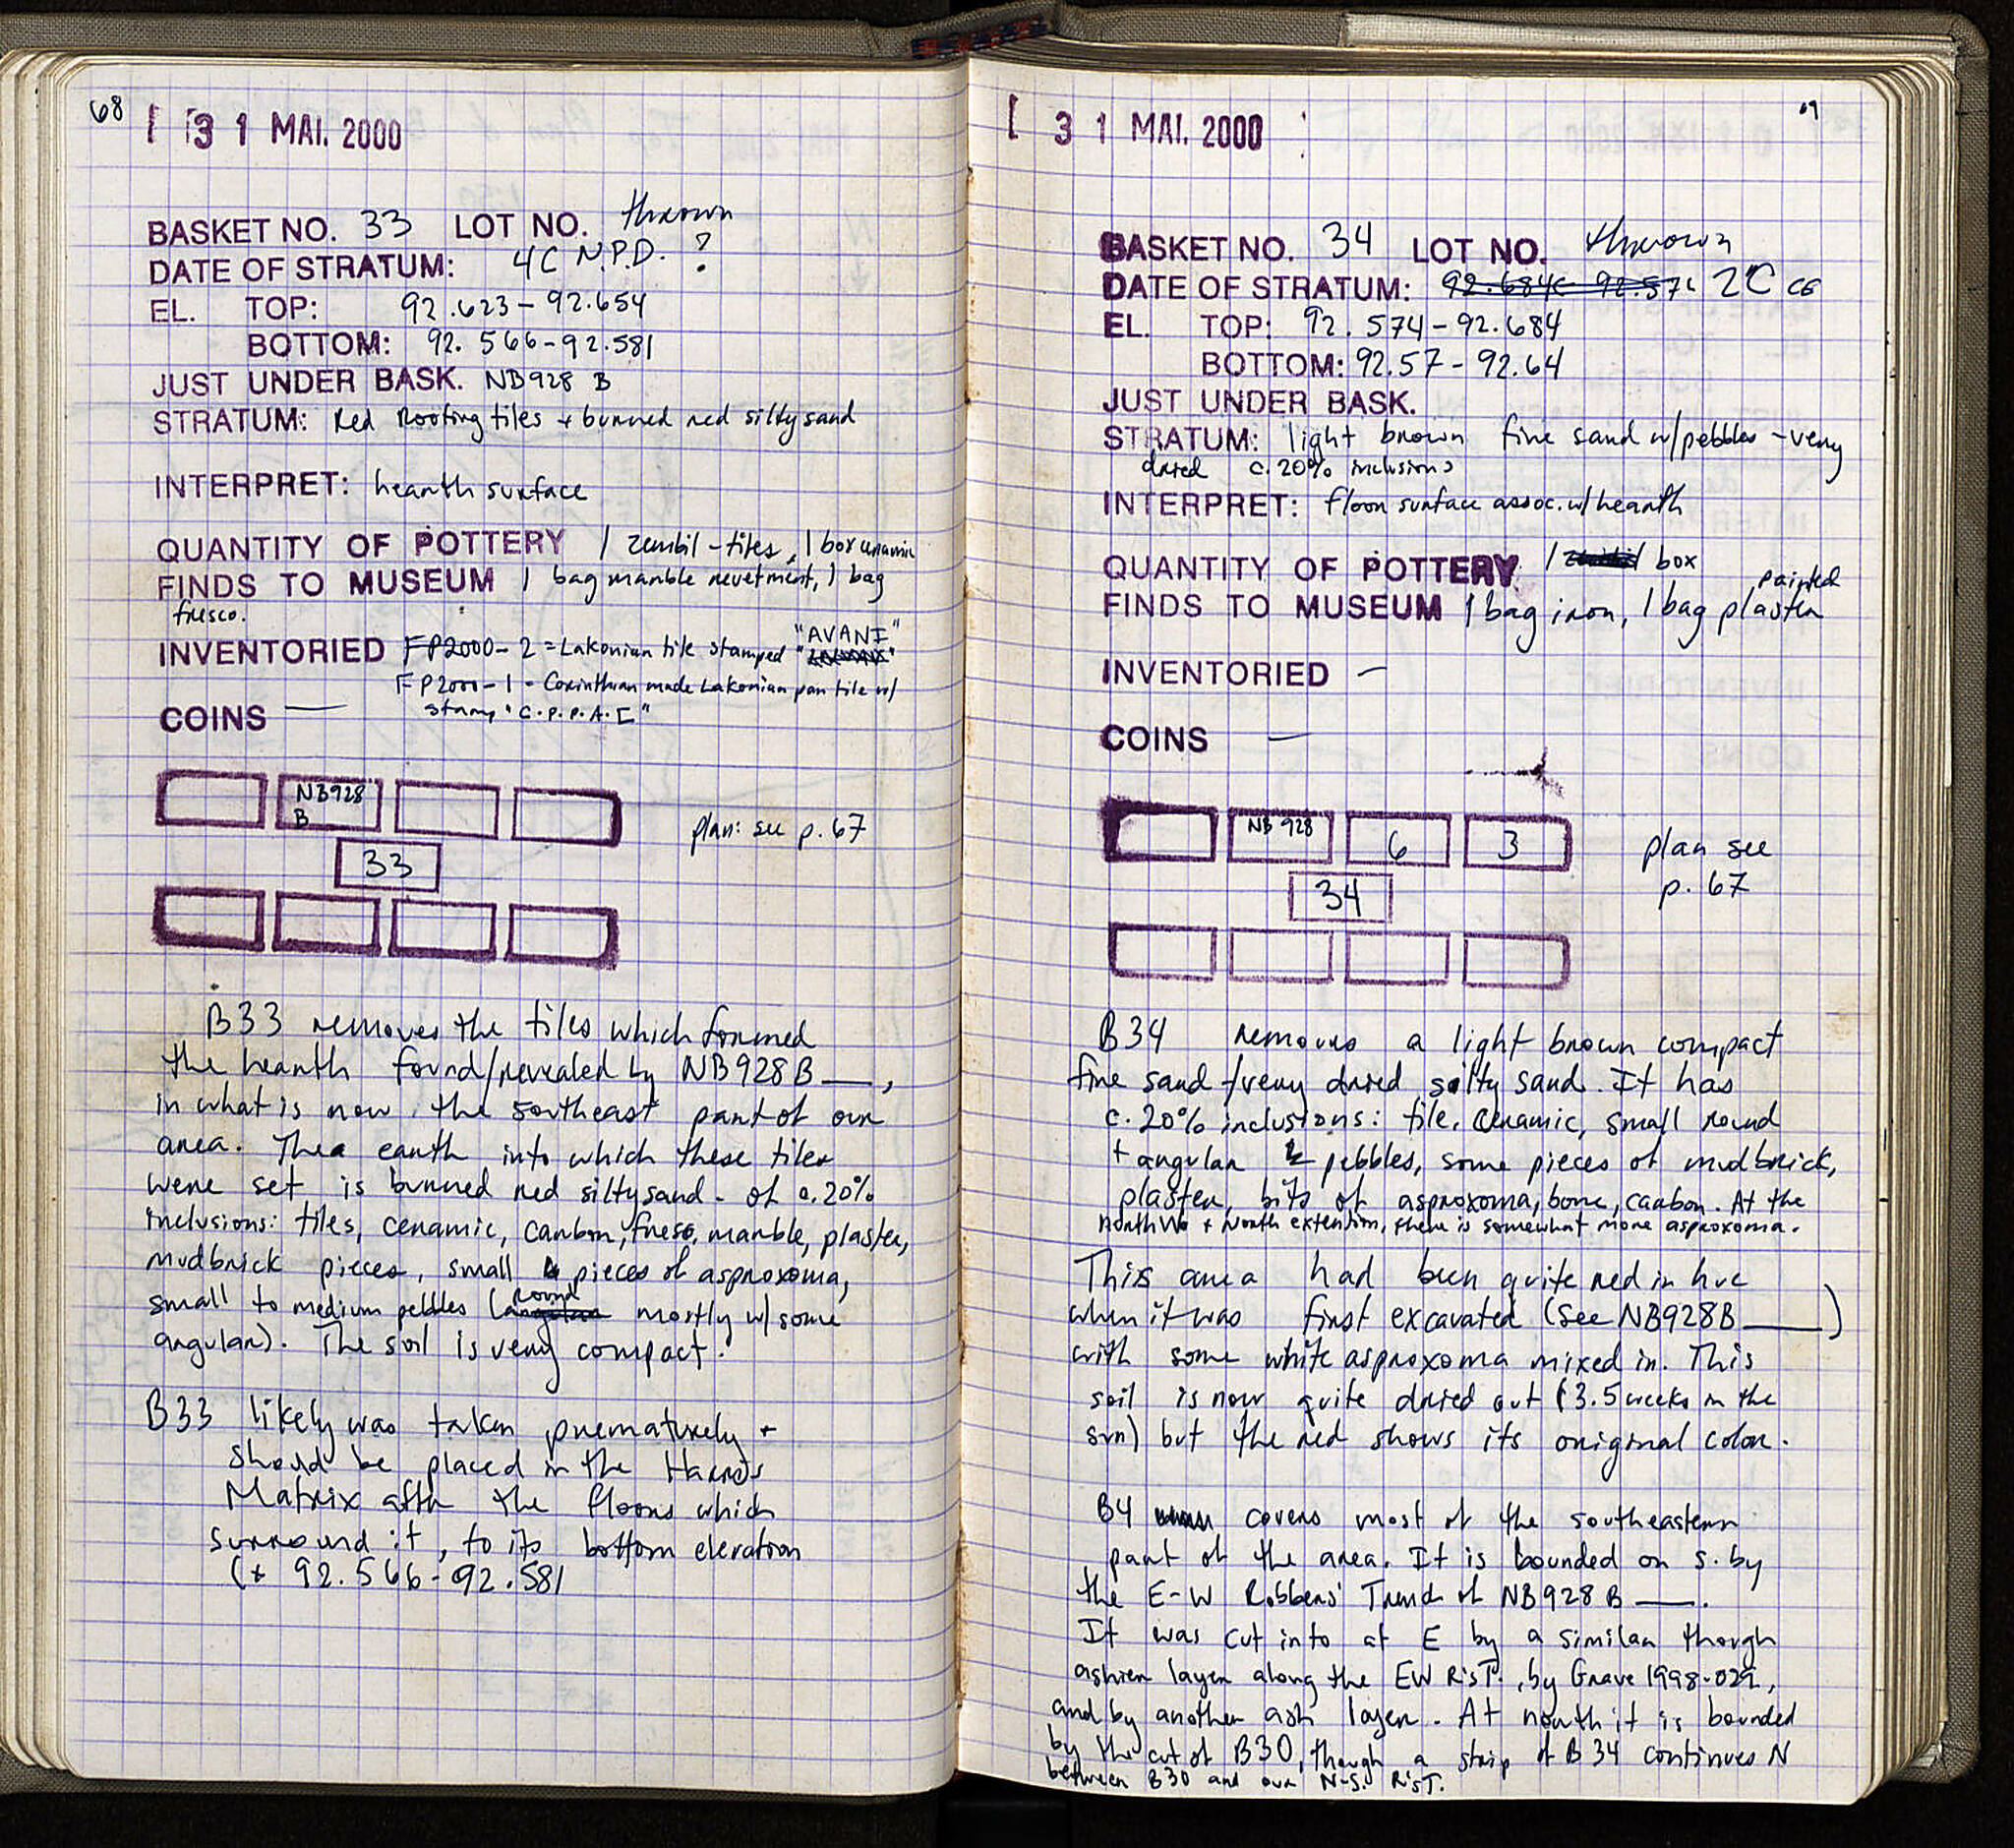 68
31 MAI. 2000
BASKET NO. 33 LOT NO. thrown
DATE OF STRATUM: 4C N.P.D. ?
EL. TOP: 92.623-92.654
BOTTOM: 92.566-92.581
JUST UNDER BASK. NB928 B
STRATUM: Red Roofing tiles + burned red silty sand
INTERPRET: hearth surface
QUANTITY OF POTTERY 1 zembil-tiles, 1 box ceramic
FINDS TO MUSEUM 1 bag marble revetment, 1 bag
fresco.
INVENTORIED FP2000-2 = Lakonian tile stamped "AVANI"
FP2000-1 - Corinthian made Lakonian pan tile w/
stamp "C.P.P.A.C"
COINS —
NB928
B
plan: see p. 67
33
B33 removes the tiles which formed
the hearth found/revealed by NB928B ___,
in what is now the southeast part of our
area. The earth into which these tiles
were set is burned red silty sand - of c.20%
inclusions: tiles, ceramic, carbon, fresc, marble, plaster,
mudbrick pieces, small pieces of asproxoma,
small to medium pebbles (round mostly w/ some
angular). The soil is very compact.
B33 likely was taken prematurely +
should be placed in the Harris
Matrix after the floors which
surround it, to its bottom elevation
(* 92.566-92.581
69
31 MAI. 2000
BASKET NO. 34 LOT NO. thrown
DATE OF STRATUM: 2C CE
EL. TOP: 92.574-92.684
BOTTOM: 92.57-92.64
JUST UNDER BASK.
STRATUM: light brown fine sand w/pebbles - very
dried c.20% inclusions
INTERPRET: floor surface assoc. w/ hearth
QUANTITY OF POTTERY 1 box
FINDS TO MUSEUM 1 bag iron, 1 bag painted plaster
INVENTORIED —
COINS —
NB 928 6 3
plan see
p. 67
34
B34 removes a light brown compact
fine sand/very dried silty sand. It has
c.20% inclusions: tile, ceramic, small round
+ angular pebbles, some pieces of mudbrick,
plaster, bits of asproxoma, bone, carbon. At the
North + North extention, there is somewhat more asproxoma.
This area had been quite red in hue
when it was first excavated (see NB928B ___)
with some white asproxoma mixed in. This
soil is now quite dried out (3.5 weeks in the
sun) but the red shows its original color.
B4 covers most of the southeastern
part of the area. It is bounded on S. by
the E-W Robbers' Trench of NB928 B ___.
It was cut into at E by a similar though
ashier layer along the EW R'sT., by Grave 1998-022,
and by another ash layer. At north it is bounded
by the cut of B30, though a strip of B34 continues N
between B30 and our N-S. R'sT.